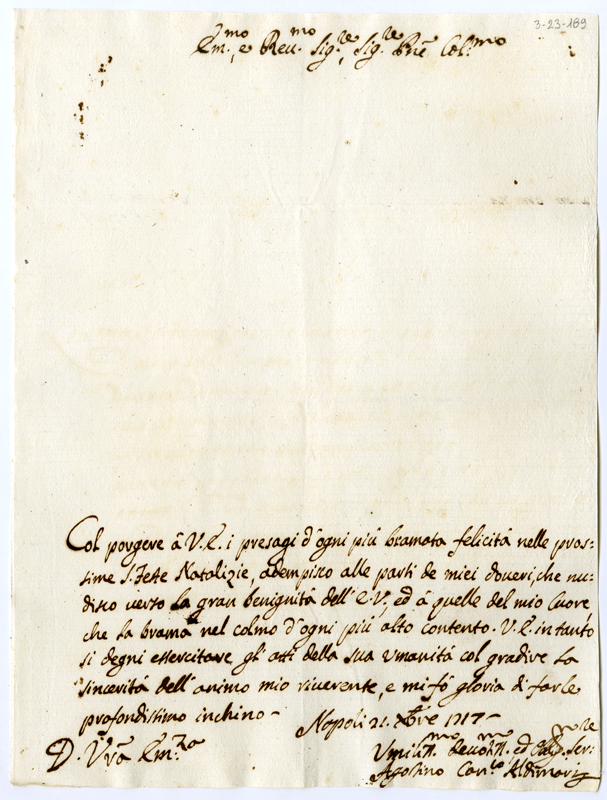 3-23-189
Em.mo, e Reu.mo Sig.re, Sig.re Pnē Col.mo
Col porgere à V.E. i presagi d'ogni più bramata felicità nelle pros=
sime S. Feste Natalizie, adempisco alle parti de miei doueri, che nu=
drisco uerso la gran benignità dell'E.V., ed à quelle del mio Cuore,
che la brama nel colmo d'ogni più alto contento. V.E. in tanto
si degni essercitare gl'atti della sua Vmanità col gradire la
sincerità dell'animo mio riuerente, e mi fò gloria di farle
profondissimo inchino~
Napoli 21. Xbre 1717~
D. Vrā Em.za
Vmiliss.mo Deuotiss.mo ed Oblig.mo Ser.re
Agostino Can.co Aldimari